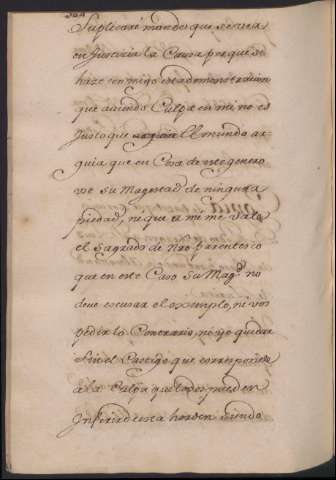 Suplicaré mande que se vea
en Justicia la Causa porque se
haze conmigo esta demonstracion
que auiendo Culpa en mi no es
Justo que el mundo ar
guia que en Cosa de este genero
vse su Magestad de ninguna
piedad, ni que a mi me valga
el Sagrado de Nro parentesco
que en este Caso Su Magd. no
deue escusar el exemplo, ni vos
pedir lo Contrario, ni yo quedar
Sin el Castigo que corresponde
a la Culpa que
Inferir esta horden siendo